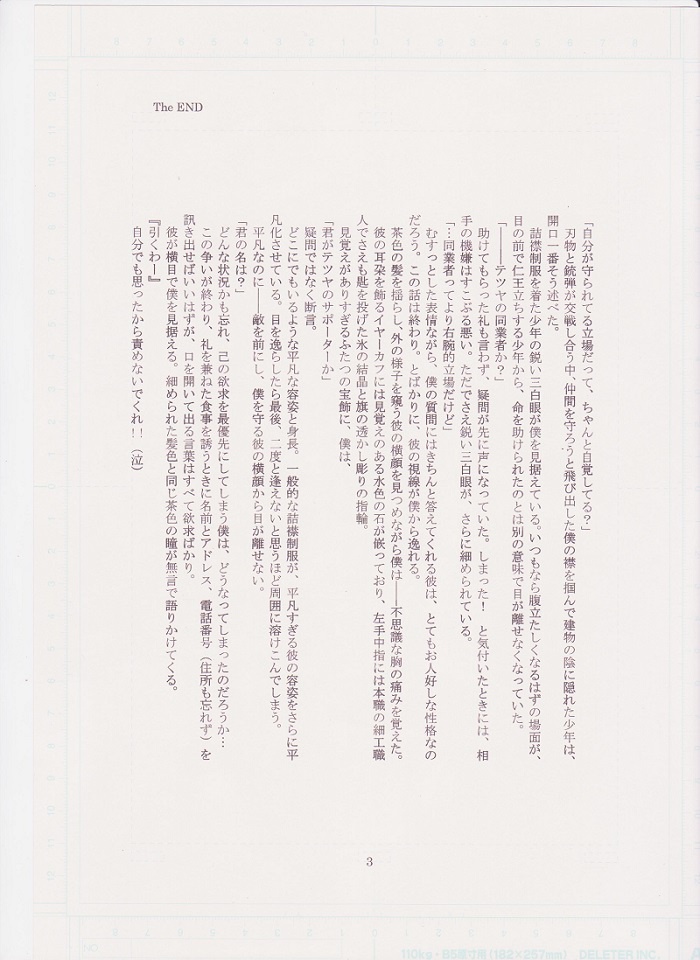 「自分が守られてる立場だって、ちゃんと自覚してる？」
刃物と銃弾が交戦し合う中、仲間を守ろうと飛び出した僕の襟を掴んで建物の陰に隠れた少年は、
開口一番そう述べた。
詰襟制服を着た少年の鋭い三白眼が僕を見据えている。いつもなら腹立たしくなるはずの場面が、
目の前で仁王立ちする少年から、命を助けられたのとは別の意味で目が離せなくなっていた。
「―――テツヤの同業者か？」
助けてもらった礼も言わず、疑問が先に声になっていた。しまった！　と気付いたときには、相
手の機嫌はすこぶる悪い。ただでさえ鋭い三白眼が、さらに細められている。
「…同業者ってより右腕的立場だけど」
むすっとした表情ながら、僕の質問にはきちんと答えてくれる彼は、とてもお人好しな性格なの
だろう。この話は終わり。とばかりに、彼の視線が僕から逸れる。
茶色の髪を揺らし、外の様子を窺う彼の横顔を見つめながら僕は――不思議な胸の痛みを覚えた。
彼の耳朶を飾るイヤーカフには見覚えのある水色の石が嵌っており、左手中指には本職の細工職
人でさえも匙を投げた氷の結晶と旗の透かし彫りの指輪。
見覚えがありすぎるふたつの宝飾に、僕は、
「君がテツヤのサポーターか」
疑問ではなく断言。
どこにでもいるような平凡な容姿と身長。一般的な詰襟制服が、平凡すぎる彼の容姿をさらに平
凡化させている。目を逸らしたら最後、二度と逢えないと思うほど周囲に溶けこんでしまう。
平凡なのに――敵を前にし、僕を守る彼の横顔から目が離せない。
「君の名は？」
どんな状況かも忘れ、己の欲求を最優先にしてしまう僕は、どうなってしまったのだろうか…
この争いが終わり、礼を兼ねた食事を誘うときに名前とアドレス、電話番号（住所も忘れず）を
訊き出せばいいはずが、口を開いて出る言葉はすべて欲求ばかり。
彼が横目で僕を見据える。細められた髪色と同じ茶色の瞳が無言で語りかけてくる。
『引くわー』
自分でも思ったから責めないでくれ！！（泣）
The END
3
110kg・B5原寸用(182×257mm)　DELETER INC.